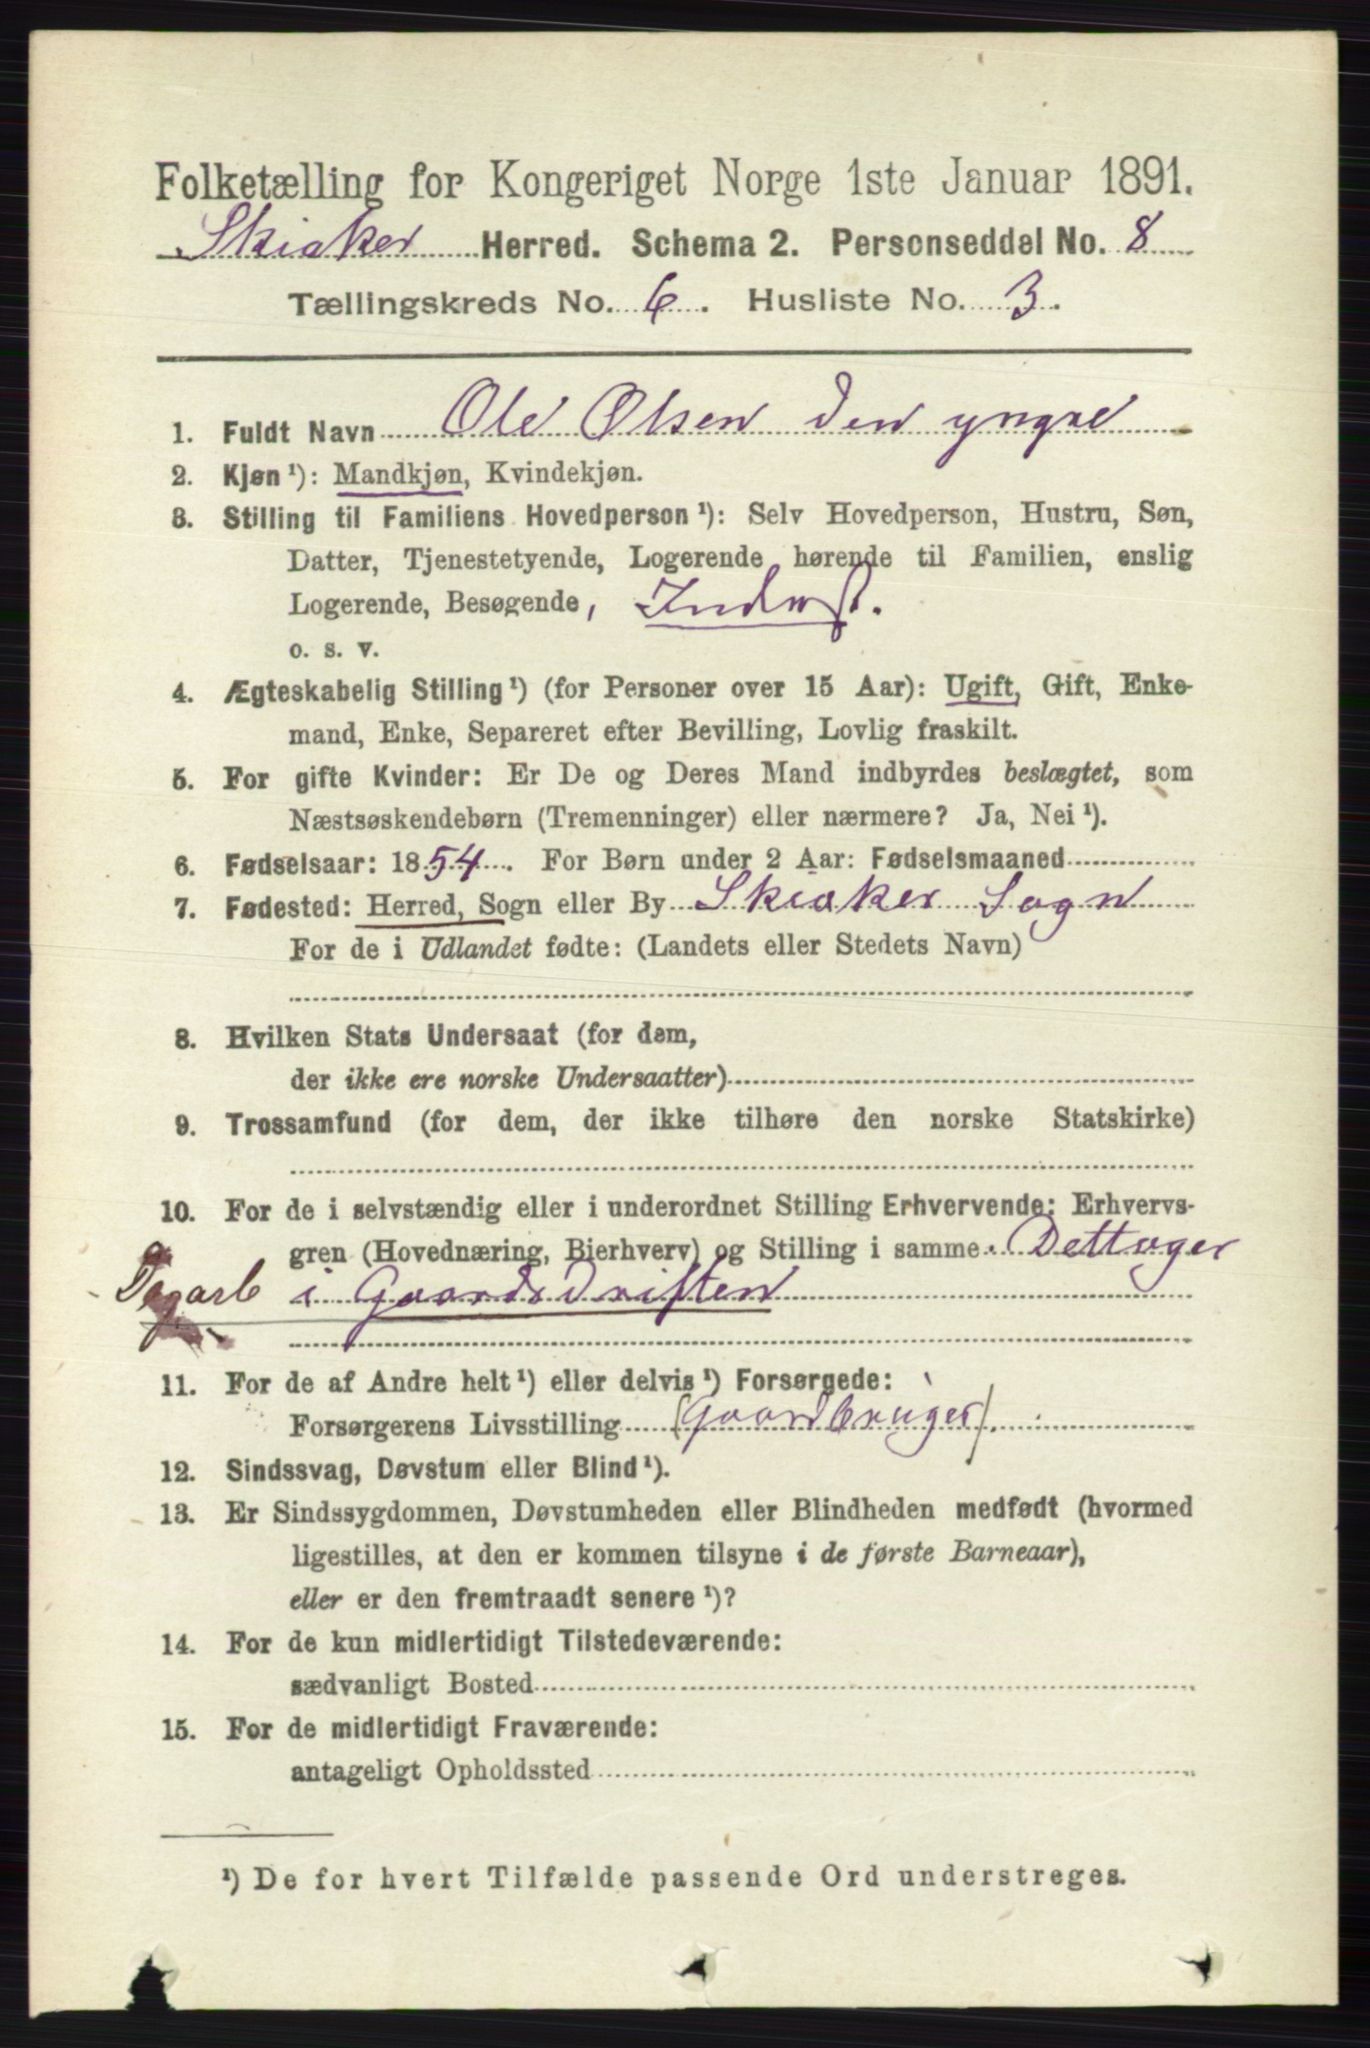 Folketælling for Kongeriget Norge 1ste Januar 1891.
Skiaker Herred. Schema 2. Personseddel No. 8
Tællingskreds No. 6. Husliste No. 3.
1. Fuldt Navn Ole Olsen den yngre
2. Kjøn¹): Mandkjøn, Kvindekjøn.
3. Stilling til Familiens Hovedperson¹): Selv Hovedperson, Hustru, Søn,
Datter, Tjenestetyende, Logerende hørende til Familien, enslig
Logerende, Besøgende, Inderst.
o. s. v.
4. Ægteskabelig Stilling¹) (for Personer over 15 Aar): Ugift, Gift, Enke-
mand, Enke, Separeret efter Bevilling, Lovlig fraskilt.
5. For gifte Kvinder: Er De og Deres Mand indbyrdes beslægtet, som
Næstsøskendebørn (Tremenninger) eller nærmere? Ja, Nei¹).
6. Fødselsaar: 1854. For Børn under 2 Aar: Fødselsmaaned
7. Fødested: Herred, Sogn eller By Skiaker Sogn
For de i Udlandet fødte: (Landets eller Stedets Navn)
8. Hvilken Stats Undersaat (for dem,
der ikke ere norske Undersaatter)
9. Trossamfund (for dem, der ikke tilhøre den norske Statskirke)
10. For de i selvstændig eller i underordnet Stilling Erhvervende: Erhvervs-
gren (Hovednæring, Bierhverv) og Stilling i samme. Dettager
Dagarb i Gaardsdriften
11. For de af Andre helt¹) eller delvis¹) Forsørgede:
Forsørgerens Livsstilling (Gaardbruger).
12. Sindssvag, Døvstum eller Blind¹).
13. Er Sindssygdommen, Døvstumheden eller Blindheden medfødt (hvormed
ligestilles, at den er kommen tilsyne i de første Barneaar),
eller er den fremtraadt senere¹)?
14. For de kun midlertidigt Tilstedeværende:
sædvanligt Bosted
15. For de midlertidigt Fraværende:
antageligt Opholdssted
¹) De for hvert Tilfælde passende Ord understreges.